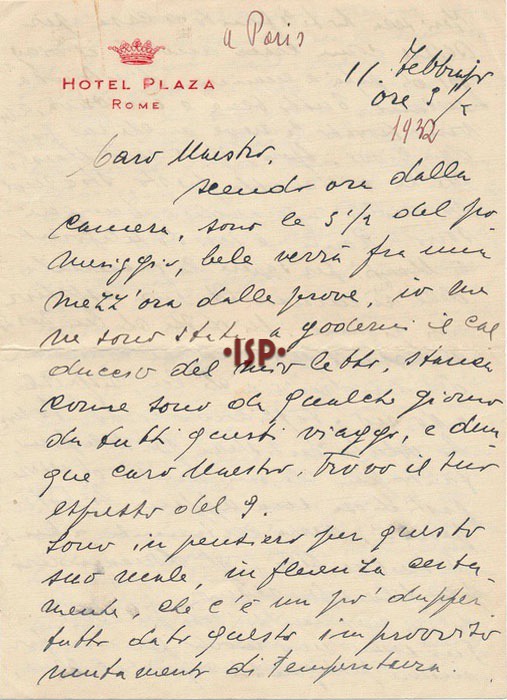 a Paris
HOTEL PLAZA
ROME
11 Febbrajo
ore 5 1/2
1932
Caro Maestro,
scendo ora dalla
camera, sono le 5 1/2 del po
meriggio, bele verrà fra una
mezz'ora dalle prove, io me
ne sono stata a godermi il cal
duccio del mio letto, stanca
come sono da qualche giorno
da tutti questi viaggi, e dun
que caro Maestro, trovo il suo
espresso del 9.
Sono in pensiero per questo
suo male, influenza certa
mente, che c'è un po' dapper
tutto dato questo improvviso
mutamento di temperatura.
•ISP•